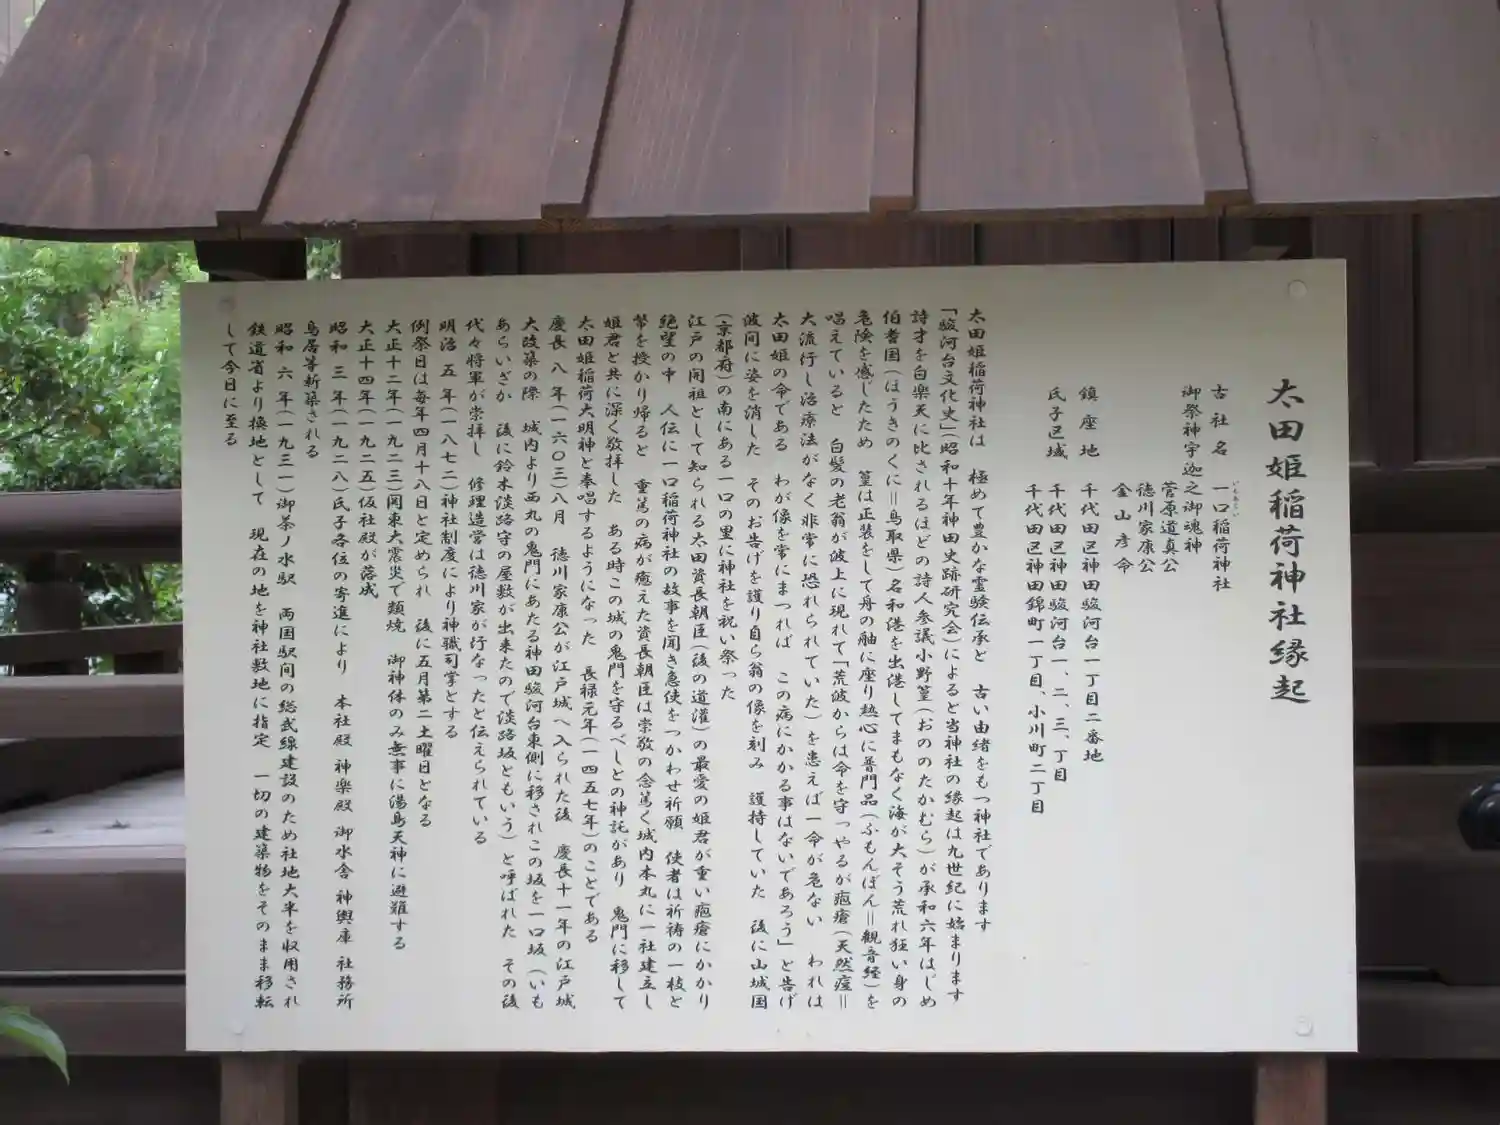 太田姫稲荷神社縁起
古社名　一口稲荷神社
いもあらい
御祭神宇迦之御魂神
菅原道真公
徳川家康公
金山彦命
鎮座地　千代田区神田駿河台一丁目二番地
氏子区域　千代田区神田駿河台一、二、三、丁目
千代田区神田錦町一丁目、小川町二丁目
太田姫稲荷神社は　極めて豊かな霊験伝承と　古い由緒をもつ神社であります
「駿河台文化史」(昭和十年神田史跡研究会)によると当神社の縁起は九世紀に始まります
詩才を白楽天に比されるほどの詩人参議小野篁(おののたかむら)が承和六年はじめ
伯耆国(ほうきのくに＝鳥取県)名和港を出港してまもなく海が大そう荒れ狂い身の
危険を感じたため　篁は正装をして舟の舳に座り熱心に普門品(ふもんぼん＝観音経)を
唱えていると　白髪の老翁が波上に現れて「荒波からは命を守つやるが疱瘡(天然痘＝
大流行し治療法がなく非常に恐れられていた)を患えば一命が危ない　われは
太田姫の命である　わが像を常にまつれば　この病にかかる事はないであろう」と告げ
波間に姿を消した　そのお告げを護り自ら翁の像を刻み　護持していた　後に山城国
(京都府)の南にある一口の里に神社を祝い祭った
江戸の開祖として知られる太田資長朝臣(後の道灌)の最愛の姫君が重い疱瘡にかかり
絶望の中　人伝に一口稲荷神社の故事を聞き急使をつかわせ祈願　使者は祈祷の一枝と
幣を授かり帰ると　重篤の病が癒えた資長朝臣は崇敬の念篤く城内本丸に一社建立し
姫君と共に深く敬拝した　ある時この城の鬼門を守るべしとの神託があり　鬼門に移して
太田姫稲荷大明神と奉唱するようになった　長禄元年(一四五七年)のことである
慶長　八　年(一六〇三)八月　徳川家康公が江戸城へ入られた後　慶長十一年の江戸城
大改築の際　城内より西丸の鬼門にあたる神田駿河台東側に移されこの坂を一口坂(いも
あらいざか　後に鈴木淡路守の屋敷が出来たので淡路坂ともいう)と呼ばれた　その後
代々将軍が崇拝し　修理造営は徳川家が行なったと伝えられている
明治　五　年(一八七二)神社制度により神職司掌とする
例祭日は毎年四月十八日と定められ　後に五月第二土曜日となる
大正十二年(一九二三)関東大震災で類焼　御神体のみ無事に湯島天神に避難する
大正十四年(一九二五)仮社殿が落成
昭和　三　年(一九二八)氏子各位の寄進により　本社殿　神楽殿　御水舎　神輿庫　社務所
鳥居等新築される
昭和　六　年(一九三一)御茶ノ水駅　両国駅間の総武線建設のため社地大半を収用され
鉄道省より換地として　現在の地を神社敷地に指定　一切の建築物をそのまま移転
して今日に至る